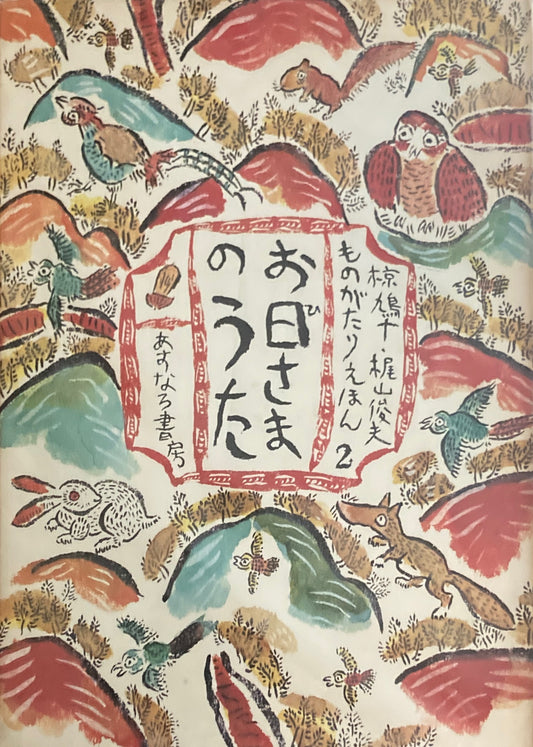 椋鳩十 梶山俊夫
ものがたりえほん 2
お日さま
び
のうた
あすなろ書房